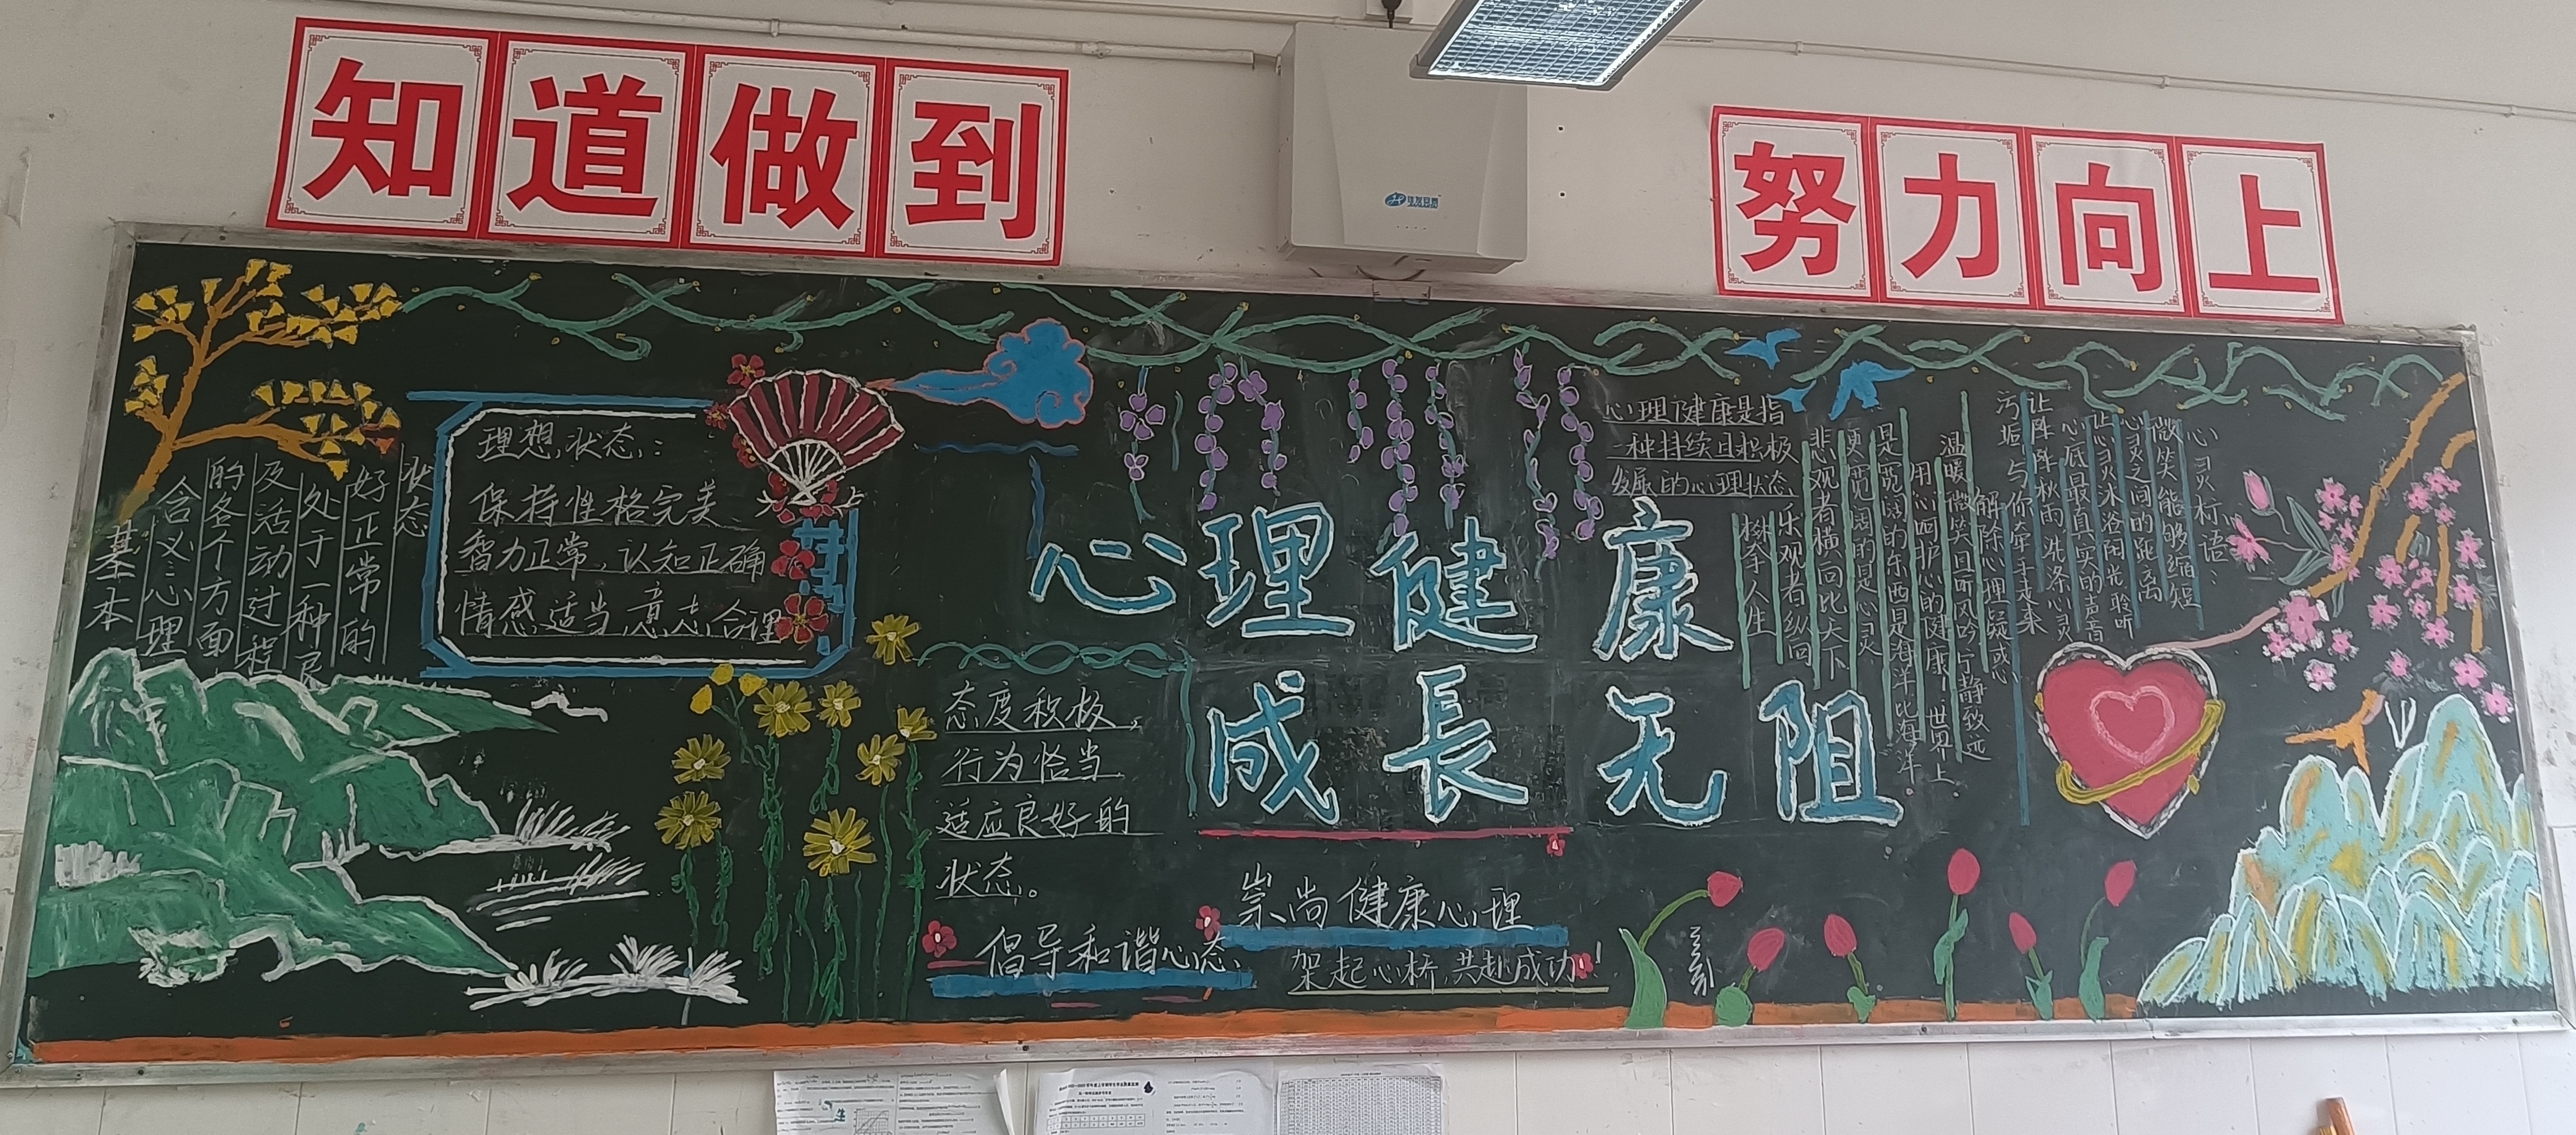 知道做到
努力向上
基本
含义：心理
的各个方面
及活动过程
处于一种良
好正常的
状态
理想状态：
保持性格完美、
智力正常，认知正确
情感适当，意志合理
态度积极，
行为恰当
适应良好的
状态。
心理健康
成長无阻
倡导和谐心态、
崇尚健康心理
架起心桥，共赴成功！
心理健康是指
一种持续且积极
发展的心理状态
心灵标语：
微笑能够缩短
心灵之间的距离
让心灵沐浴阳光 聆听
心底最真实的声音
让阵阵秋雨洗涤心灵
污垢
与你牵手走来
解除心理疑惑
温暖微笑且听风吟 宁静致远
用心呵护心的健康 世界上
是宽阔的东西是海洋 比海洋
更宽阔的是心灵
悲观者横向比天下
乐观者纵向
人生